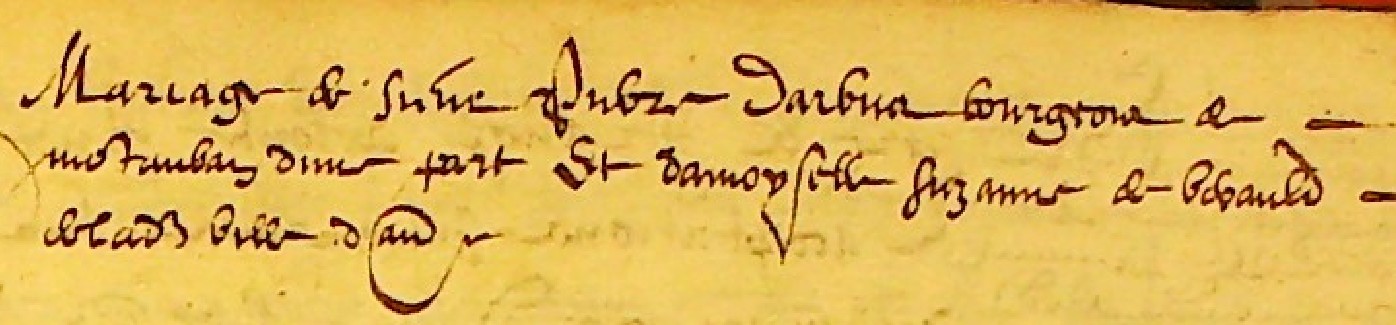 Mariage de sire Pierre Darbus bourgeois de
montauban dune part Et damoyselle suzanne de
de lad ville dau